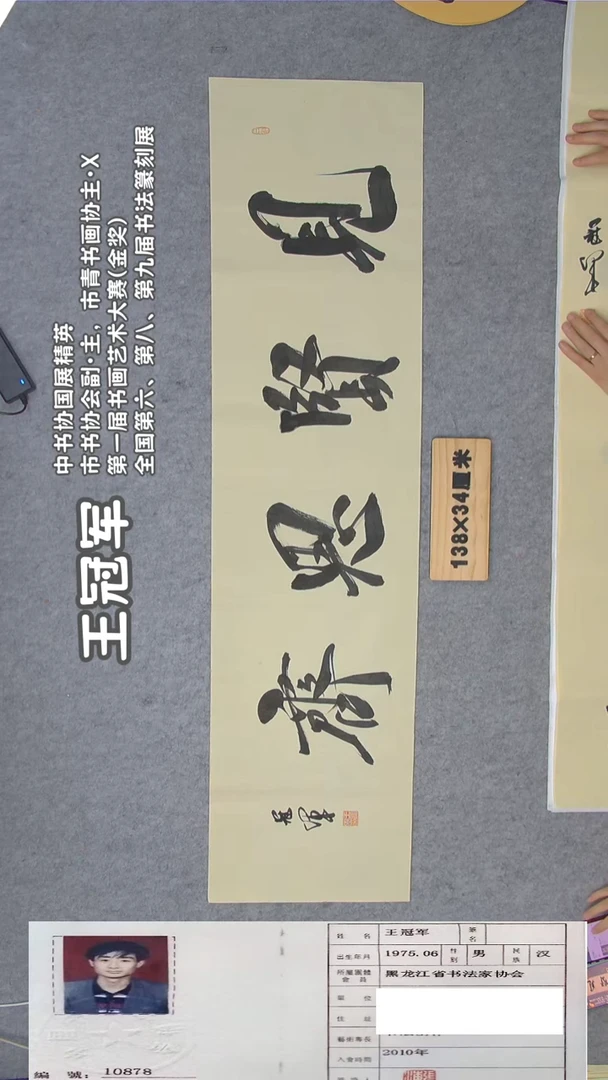 中书协国展精英
市书协会副·主，市青书画协主·X
第一届书画艺术大赛(金奖)
全国第六、第八、第九届书法篆刻展
王冠军
見賢思齊
冠軍
138×34厘米
冠軍
姓名 王冠军 筆名
出生年月 1975.06 性别 男 民族 汉
所屬團體會員 黑龙江省书法家协会
單位
住址
藝術專長
入會時間 2010年
编號：10878